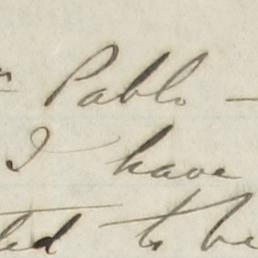 Pablo -
I have
to be